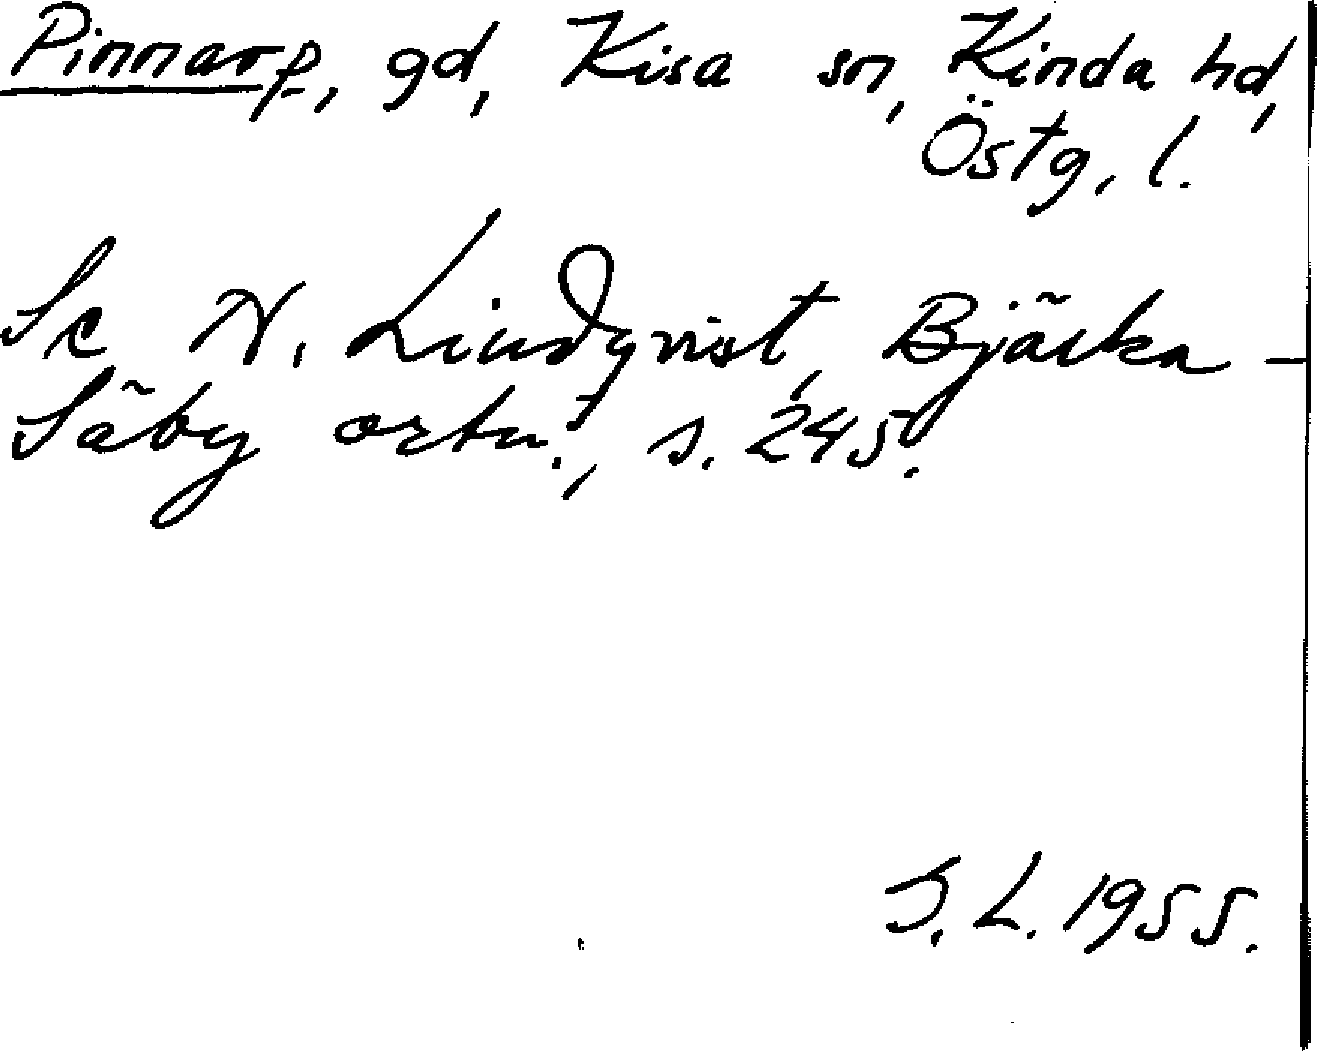 Pinnarp, gd, Kisa sn, Kinda hd,
Östg. l.
Se N. Lindqvist, Bjärka-
Säby ortn., s. 245.
J. L. 1955.